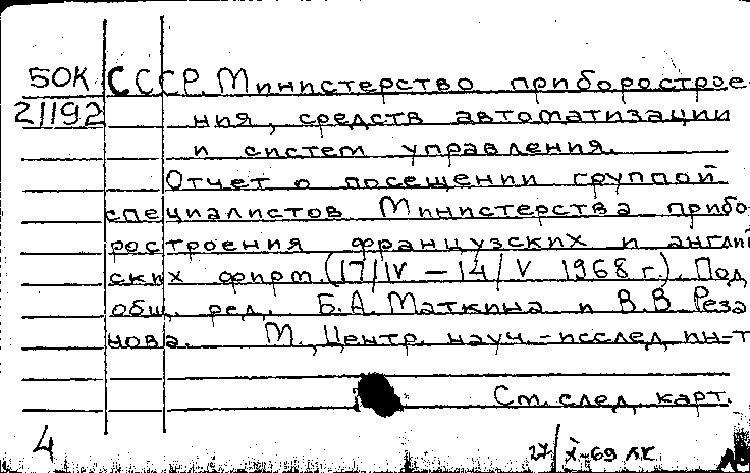 50К СССР. Министерство приборострое-
21192 ния, средств автоматизации
и систем управления.
Отчет о посещении группой
специалистов Министерства прибо-
ростроения французских и англий-
ских фирм. (17/IV – 14/V 1968 г.). Под
общ. ред. Б.А. Маткина и В.В. Реза-
нова. М., Центр. науч.-исслед. ин-т
См. след. карт.
4 27/X-69 ЛК